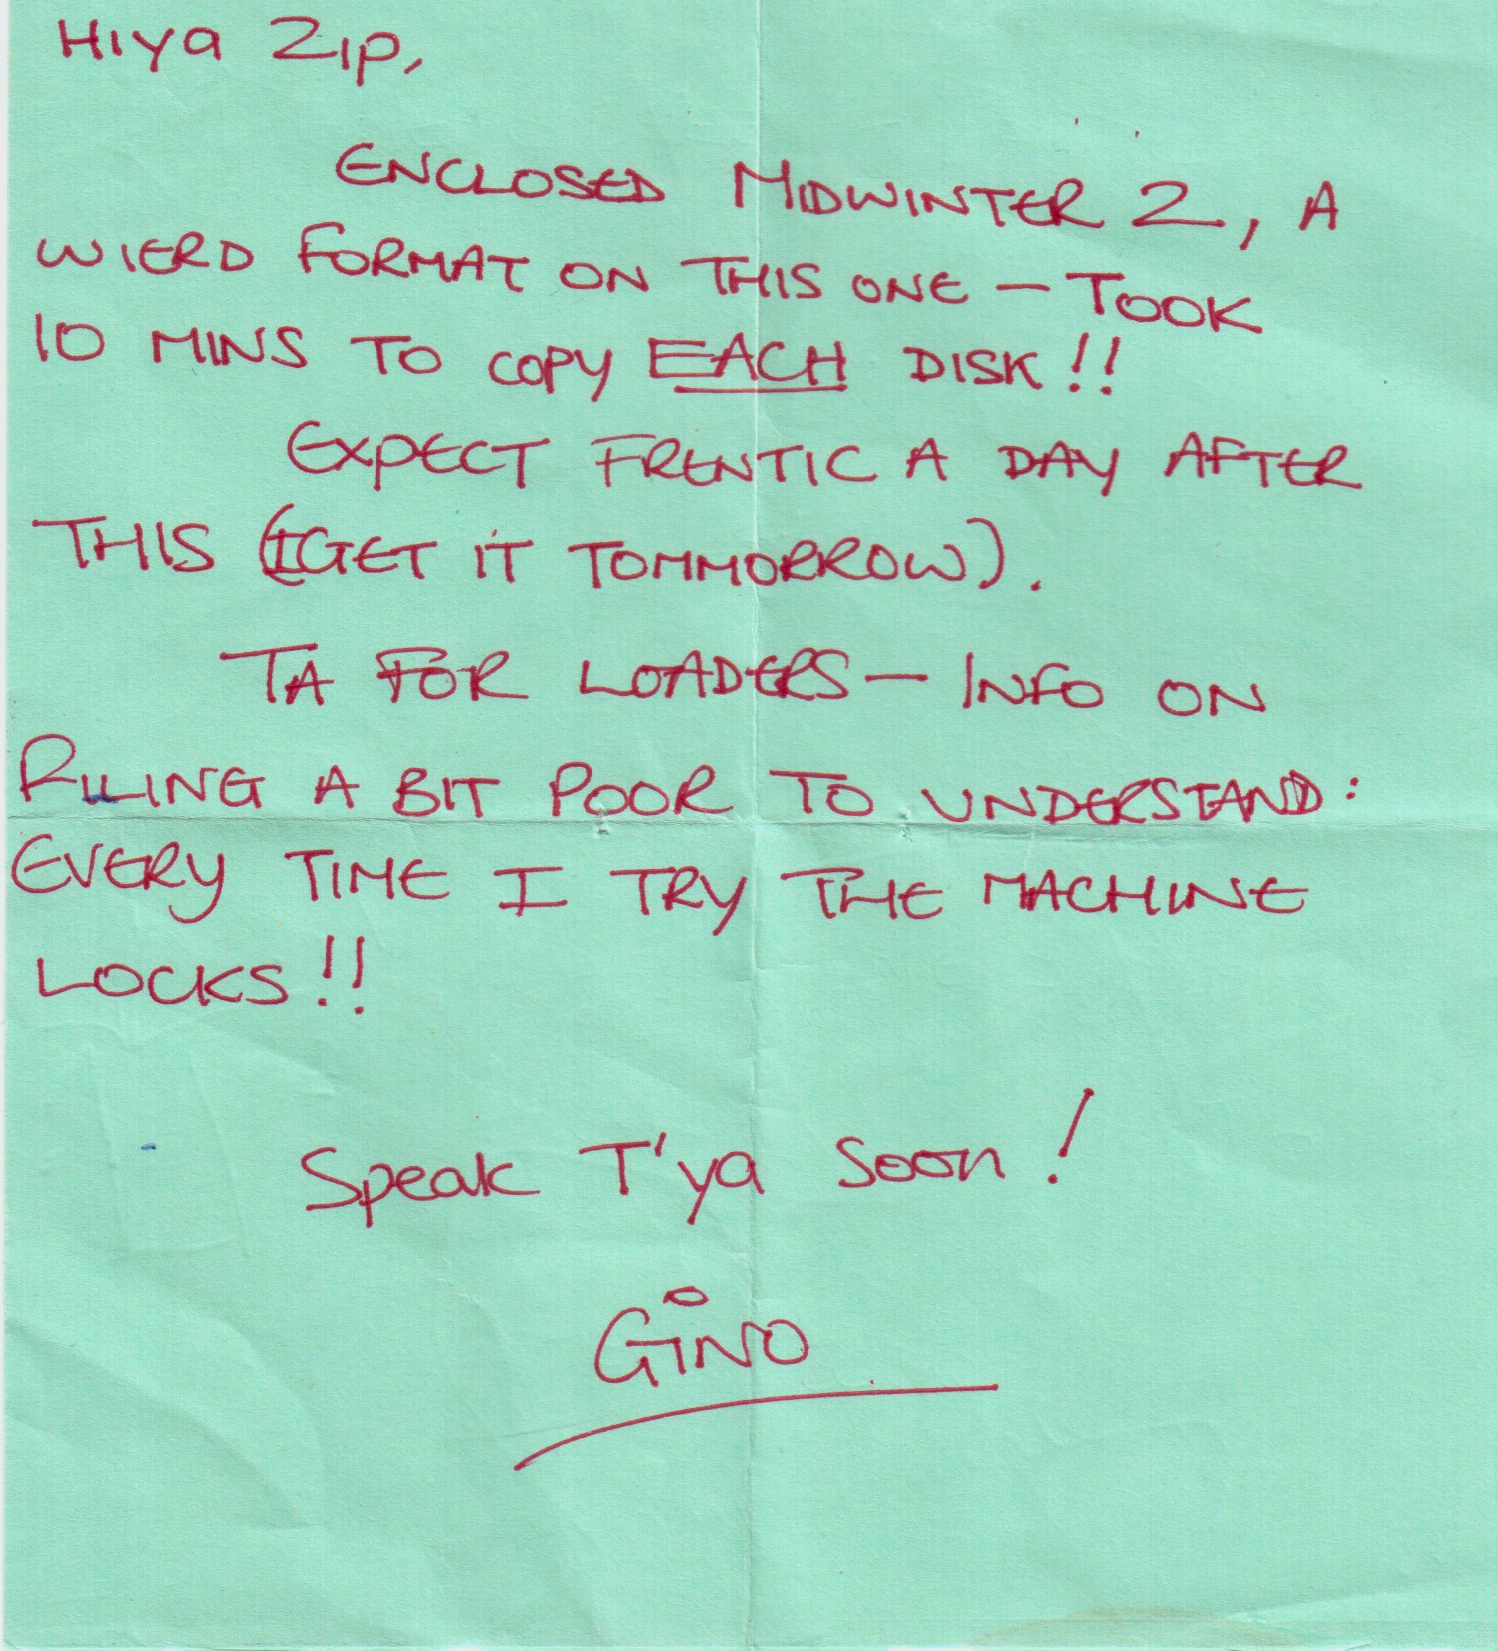 Hiya Zip,
ENCLOSED MIDWINTER 2, A
WIERD FORMAT ON THIS ONE — TOOK
10 MINS TO COPY EACH DISK!!
EXPECT FRENTIC A DAY AFTER
THIS (I GET IT TOMMORROW).
TA FOR LOADERS — INFO ON
FILING A BIT POOR TO UNDERSTAND:
EVERY TIME I TRY THE MACHINE
LOCKS!!
Speak T'ya Soon!
GiNO